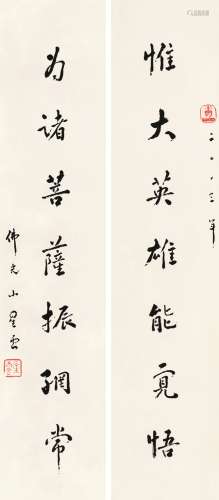 惟大英雄能覓悟
二〇〇三年
为諸菩薩振網常
佛光山星雲